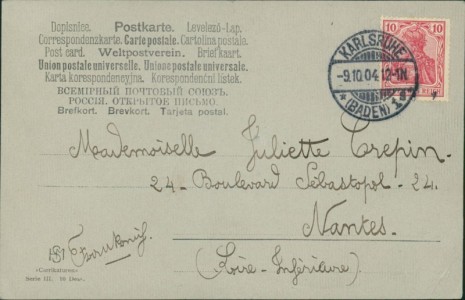 Dopisnice. Postkarte. Levelező-Lap.
Correspondenzkarte. Carte postale. Cartolina postale.
Post card. Weltpostverein. Briefkaart.
Union postale universelle. Unione postale universale.
Karta korespondencyjna. Korespondenční listek.
ВСЕМІРНЫЙ ПОЧТОВЫЙ СОЮЗЪ.
РОССІЯ. ОТКРЫТОЕ ПИСЬМО.
Brefkort. Brevkort. Tarjeta postal.
KARLSRUHE
-9.10.04.12-1N.
* (BADEN) 1
10 10
Mademoiselle Juliette Crepin.
24 - Boulevard Sébastopol - 24.
Nantes.
(Loire-Inférieure)
«Carrikaturen»
Serie III.